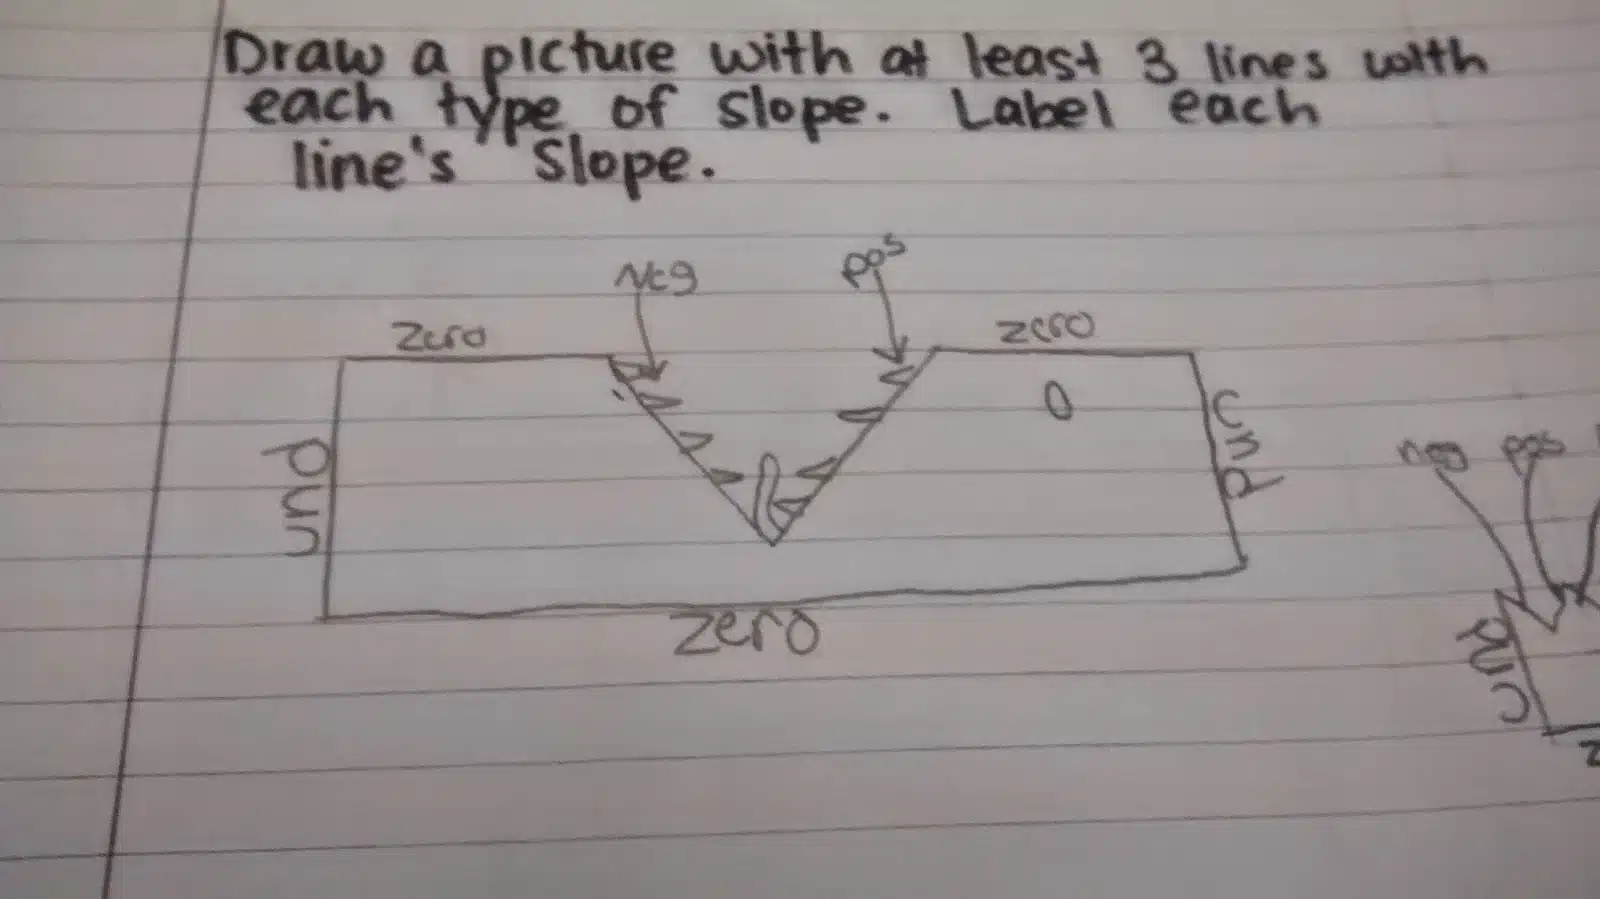 Draw a picture with at least 3 lines with
each type of slope. Label each
line's slope.
Neg
pos
Zero
zero
0
und
und
neg
pos
zero
und